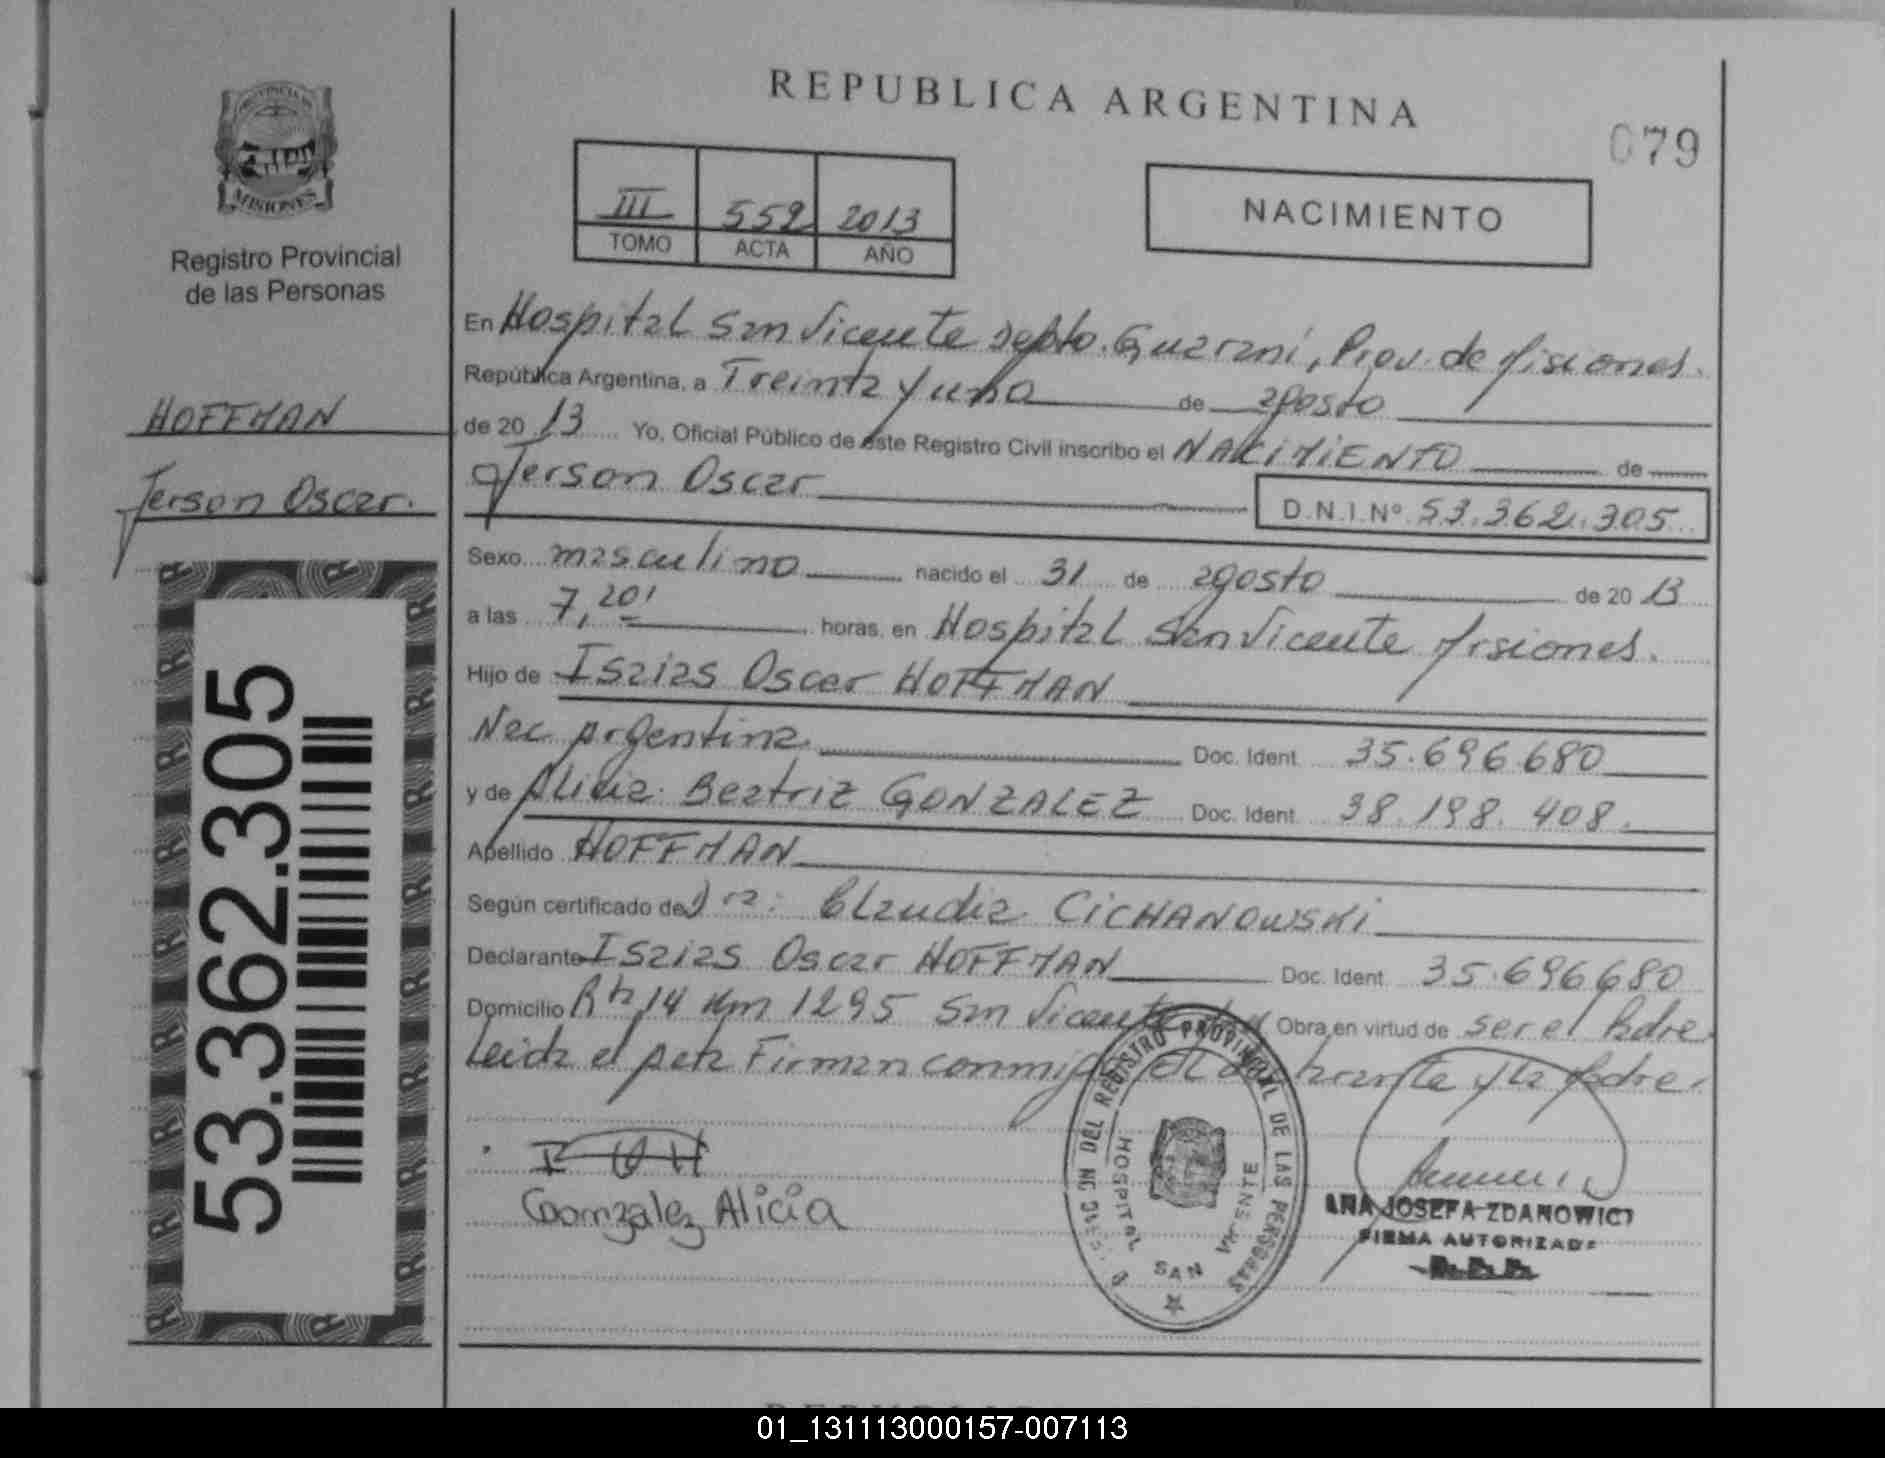 REPUBLICA ARGENTINA
079
PROVINCIA DE
MISIONES
Registro Provincial
de las Personas
III 559 2013
TOMO ACTA AÑO
NACIMIENTO
HOFFMAN
Jerson Oscar.
53.362.305
En Hospital San Vicente Depto. Guarani, Prov. de Misiones.
República Argentina, a Treinta y uno de agosto
de 20 13 Yo, Oficial Público de este Registro Civil inscribo el NACIMIENTO de
Jerson Oscar
D.N.I.Nº 53.362.305
Sexo masculino nacido el 31 de agosto de 20 13
a las 7,20' horas, en Hospital San Vicente Misiones.
Hijo de Isaias Oscar HOFFMAN
Nac Argentina. Doc. Ident. 35.696.680
y de Alicia Beatriz GONZALEZ Doc. Ident. 38.198.408.
Apellido HOFFMAN
Según certificado de Dra: Claudia CICHANOWSKI
Declarante Isaias Oscar HOFFMAN Doc. Ident. 35.696.680
Domicilio Rta 14 Km 1295 San Vicente Obra en virtud de ser el Padre.
Leida el Acta Firman conmigo el declarante y la
Goonzalez Alicia
DEL REGISTRO PROVINCIAL DE LAS PERSONAS
HOSPITAL SAN VICENTE
ANA JOSEFA ZDANOWICZ
FIRMA AUTORIZADA
01_131113000157-007113